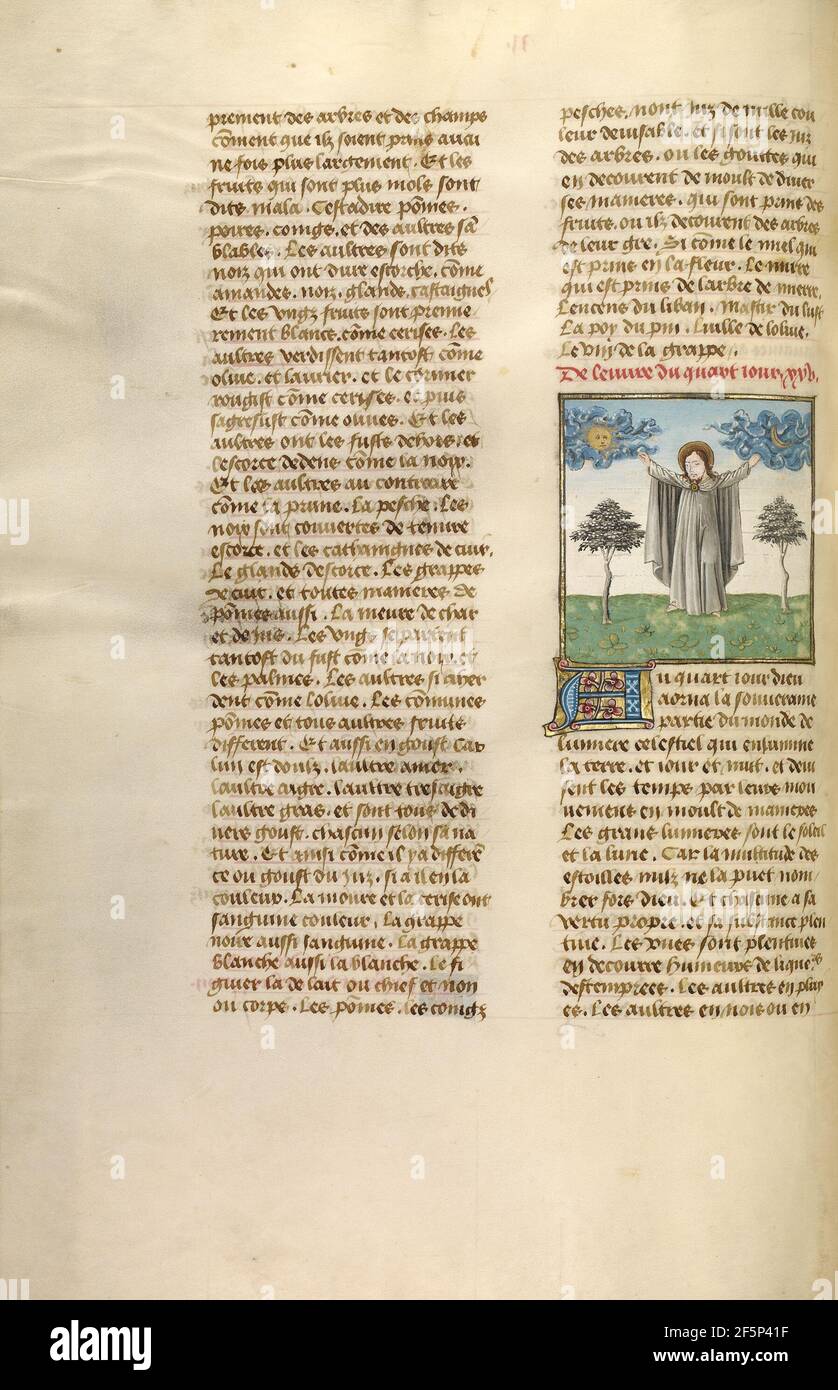 prement des arbres et des champs
cõment que ilz soient prins auci
ne fois plus largement. Et les
fruits qui sont plus mols sont
dits mala. Cestadire põmes.
poires. coings. et des aultres sã
blables. Les aultres sont dits
noix qui ont dure escorche. cõme
amandes. noix. glands. castaignes
Et les vngz fruits sont premie
rement blancs. cõme cerises. Les
aultres verdissent tantost cõme
oliue. et laurier. et le cormier
rougist cõme cerises. et puis
cõme oliues. Et les
aultres ont les fusts dehors et
lescorce dedens cõme la noix.
Et les aultres au contraire
cõme la prune. La pesche. Les
noix sont couuertes de tenure
escorce. et les de cuir.
Le glands descorce. Les grappes
de cuir. et toutes manieres de
põmes aussi. La meure de char
et de jus. Les vngs se partent
tantost du fust cõme la noix et
les palmes. Les aultres si aher
dent cõme loliue. Les cõmunes
põmes et tous aultres fruits
different. Et aussi en goust Car
lun est doulz. laultre amer.
laultre aigre. laultre tresaigre
laultre gras. et sont tous de di
uers goust. chascun selon sa na
ture. Et ainsi cõme il ya differẽ
ce ou goust du juz. si a il en la
couleur. La moure et la cerise ont
sanguine couleur. La grappe
noire aussi sanguine. La grappe
blanche aussi la blanche. Le fi
guier la de lait ou chief et non
ou corps. Les põmes. les coingz
pesches. nont juz de nulle cou
leur deuisable. et si sont les juz
des arbres. ou les gouttes qui
en decourent de moult de diuer
ses manieres. qui sont prins des
fruits. ou ilz decourent des arbres
de leur gre. Si cõme le miel qui
est prins en la fleur. Le mirre
qui est prins de larbre de mirre.
Lencens du liban. Mastix du
La poy du pin. Luille de loliue.
Le vin de la grappe.
De leuure du quart iour. xxv.
Au quart iour dieu
aorna la souueraine
partie du monde de
lumiere celestiel qui enlumine
la terre. et iour et nuit. et deui
sent les temps par leurs mou
uement en moult de manieres
Les grans lumieres sont le soleil
et la lune. Car la multitude des
estoilles nulz ne la puet nom
brer fors dieu. Et chascune a sa
vertu propre. et sa substance plen
tiue. Les vnes sont plentiues
en decourre humeurs de liqueᵘʳˢ
destemprees. Les aultres en pluy
es. Les aultres en nois ou en
alamy stock photo
Image ID: 2F5P41F
www.alamy.com